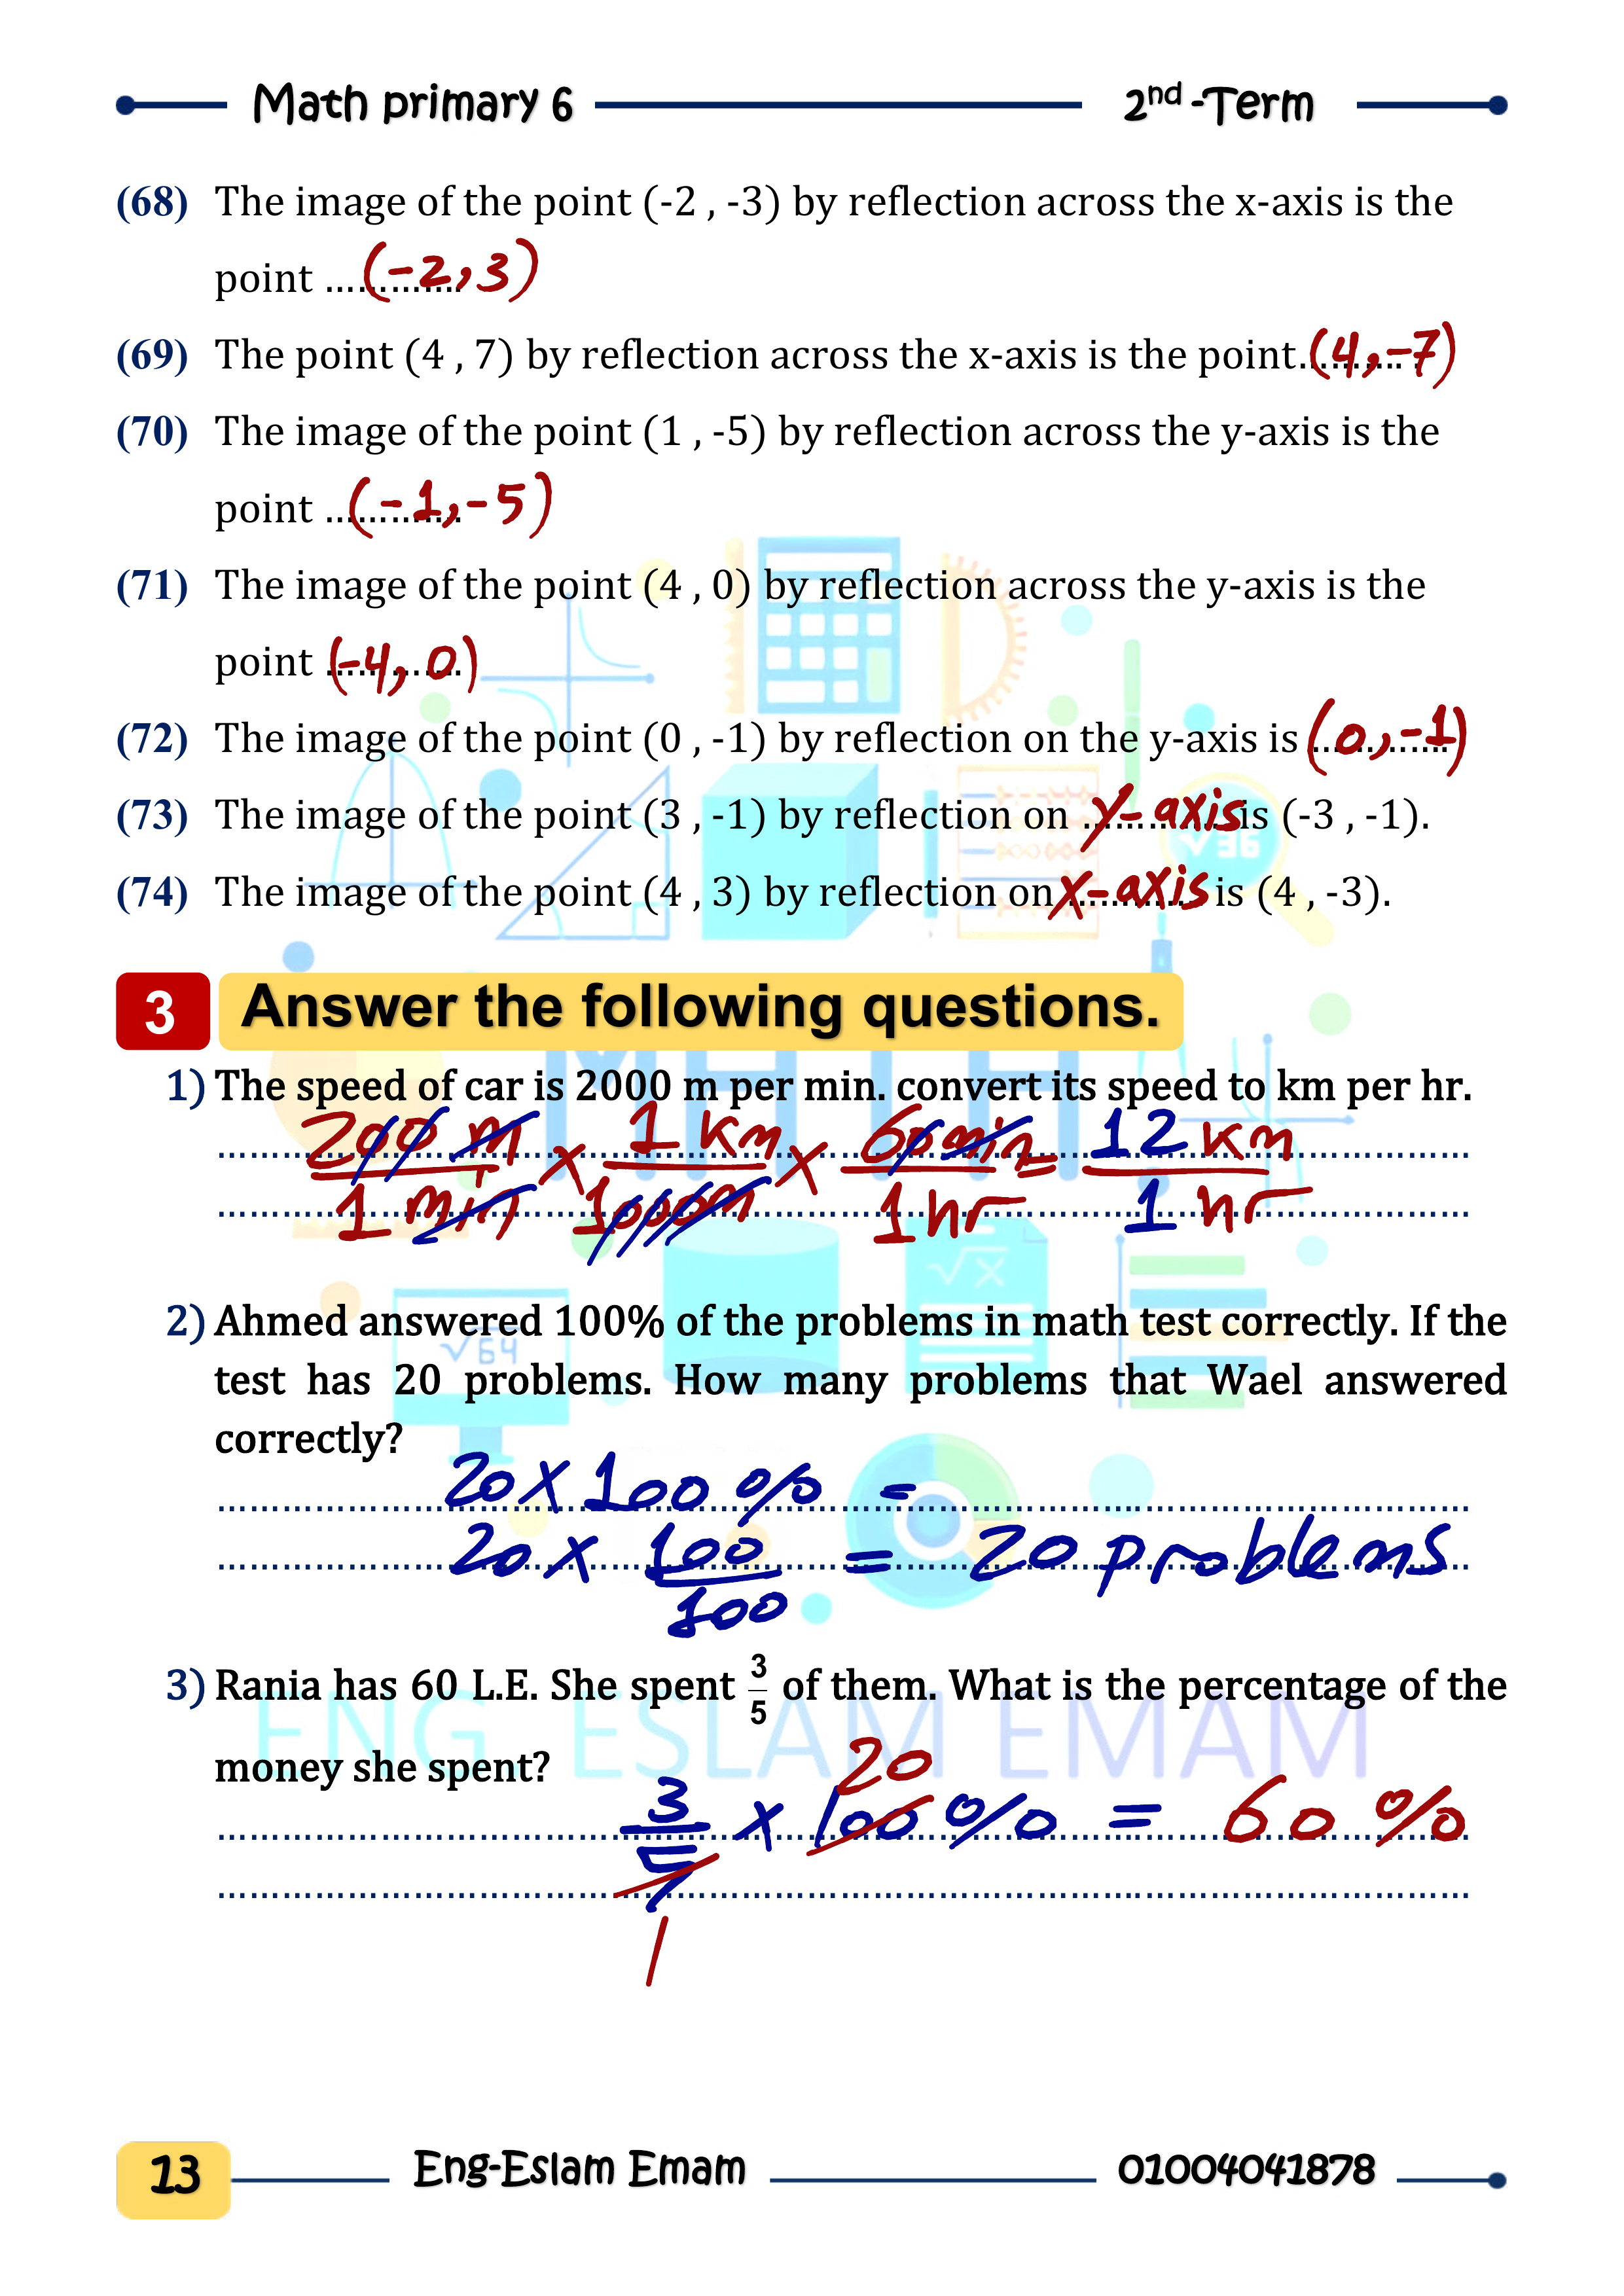 Math primary 6 2nd -Term
(68) The image of the point (-2 , -3) by reflection across the x-axis is the
point ............. (-2,3)
(69) The point (4 , 7) by reflection across the x-axis is the point.......... (4,-7)
(70) The image of the point (1 , -5) by reflection across the y-axis is the
point ............. (-1,-5)
(71) The image of the point (4 , 0) by reflection across the y-axis is the
point ............. (-4, 0)
(72) The image of the point (0 , -1) by reflection on the y-axis is ............. (0,-1)
(73) The image of the point (3 , -1) by reflection on ............. y-axis is (-3 , -1).
(74) The image of the point (4 , 3) by reflection on ............. x-axis is (4 , -3).
√36
3 Answer the following questions.
MATH
1) The speed of car is 2000 m per min. convert its speed to km per hr.
200 m / 1 min × 1 km / 1000m × 60 min / 1 hr = 12 km / 1 hr
√x
2) Ahmed answered 100% of the problems in math test correctly. If the
√64
test has 20 problems. How many problems that Wael answered
correctly?
20 × 100 % =
20 × 100 / 100 = 20 problems
3) Rania has 60 L.E. She spent 3/5 of them. What is the percentage of the
ENG ESLAM EMAM
money she spent?
20
3/5 × 100 % = 60 %
1
13 Eng-Eslam Emam 01004041878